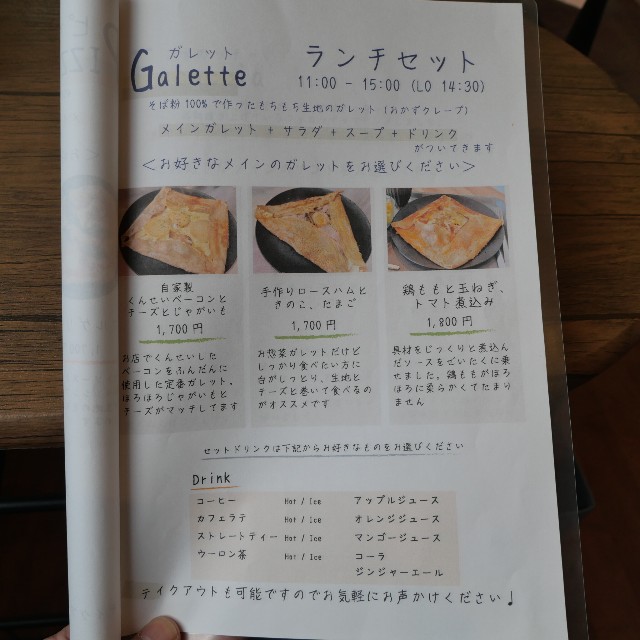 ガレット
Galette
ランチセット
11:00 - 15:00 (LO 14:30)
そば粉100%で作ったもちもち生地のガレット(おかずクレープ)
メインガレット + サラダ + スープ + ドリンク
がついてきます
<お好きなメインのガレットをお選びください>
自家製
くんせいベーコンと
チーズとじゃがいも
1,700円
お店でくんせいした
ベーコンをふんだんに
使用した定番ガレット、
ほろほろじゃがいもと
チーズがマッチしてます
手作りロースハムと
きのこ、たまご
1,700円
お惣菜ガレットだけど
しっかり食べたい方に
台がしっとり、生地と
チーズと巻いて食べるの
がオススメです
鶏ももと玉ねぎ、
トマト煮込み
1,800円
具材をじっくりと煮込ん
だソースをぜいたくに乗
せました。鶏ももがほろ
ほろに柔らかくてたまり
ません
セットドリンクは下記からお好きなものをお選びください
Drink
コーヒー Hot / Ice アップルジュース
カフェラテ Hot / Ice オレンジジュース
ストレートティー Hot / Ice マンゴージュース
ウーロン茶 Hot / Ice コーラ
ジンジャーエール
テイクアウトも可能ですのでお気軽にお声かけください♩